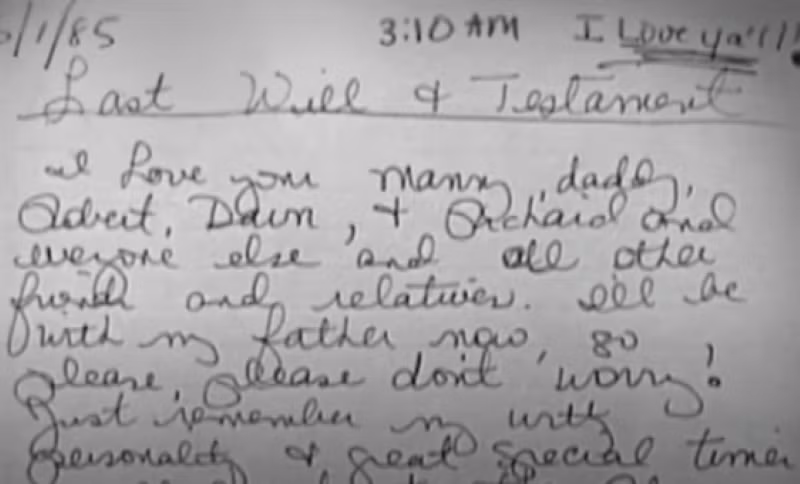 /1/85 3:10 AM I Love ya'll!
Last Will & Testament
I Love you mommy, daddy,
Robert, Dawn, & Richard and
everyone else and all other
friends and relatives. I'll be
with my father now, so
please, please don't worry!
Just remember my witty
personality & great special times